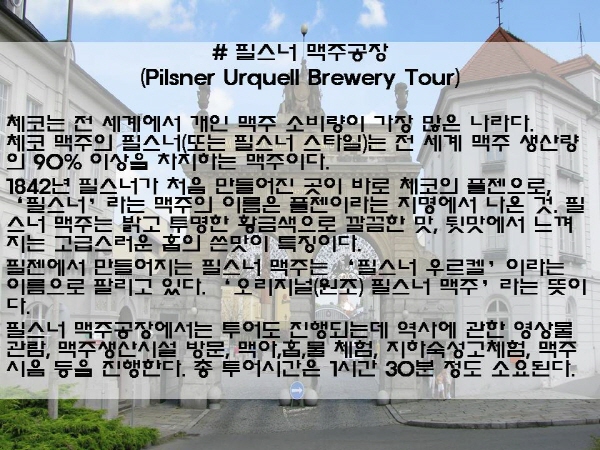 # 필스너 맥주공장
(Pilsner Urquell Brewery Tour)
체코는 전 세계에서 개인 맥주 소비량이 가장 많은 나라다.
체코 맥주의 필스너(또는 필스너 스타일)는 전 세계 맥주 생산량
의 90% 이상을 차지하는 맥주이다.
1842년 필스너가 처음 만들어진 곳이 바로 체코의 플젠으로,
‘필스너’라는 맥주의 이름은 플젠이라는 지명에서 나온 것. 필
스너 맥주는 밝고 투명한 황금색으로 깔끔한 맛, 뒷맛에서 느껴
지는 고급스러운 홉의 쓴맛이 특징이다.
필젠에서 만들어지는 필스너 맥주는 ‘필스너 우르켈’이라는
이름으로 팔리고 있다. ‘오리지널(원조) 필스너 맥주’라는 뜻이
다.
필스너 맥주공장에서는 투어도 진행되는데 역사에 관한 영상물
관람, 맥주생산시설 방문, 맥아,홉,물 체험, 지하숙성고체험, 맥주
시음 등을 진행한다. 총 투어시간은 1시간 30분 정도 소요된다.